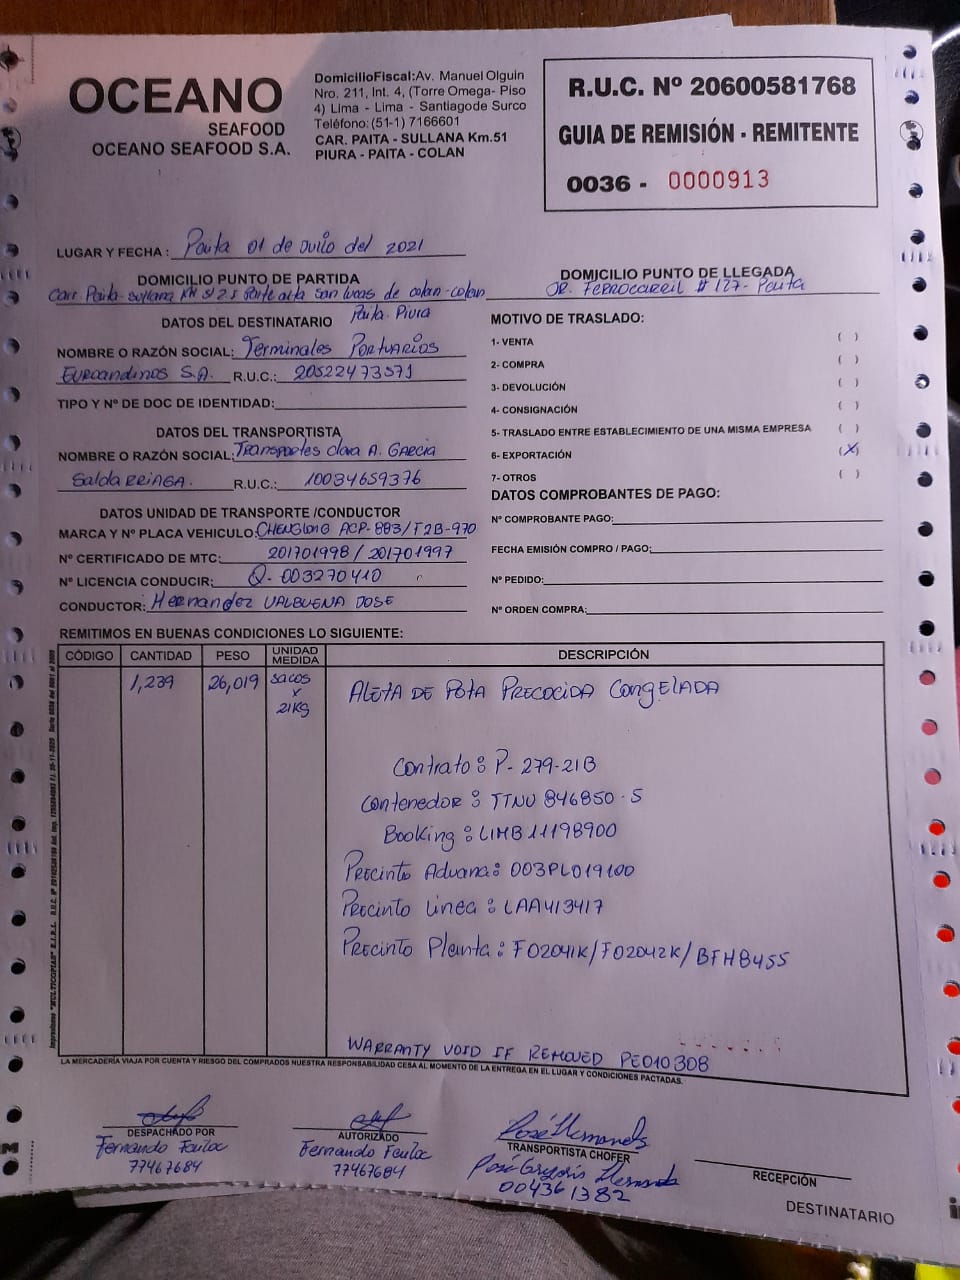 OCEANO
SEAFOOD
OCEANO SEAFOOD S.A.
DomicilioFiscal:Av. Manuel Olguin
Nro. 211, Int. 4, (Torre Omega- Piso
4) Lima - Lima - Santiagode Surco
Teléfono:(51-1) 7166601
CAR. PAITA - SULLANA Km.51
PIURA - PAITA - COLAN
R.U.C. Nº 20600581768
GUIA DE REMISIÓN - REMITENTE
0036 - 0000913
LUGAR Y FECHA : Paita 01 de Julio del 2021
DOMICILIO PUNTO DE PARTIDA
Carr. Paita-Sullana KM 51 2.5 Parte alta San Lucas de colan-colan
Paita. Piura
DOMICILIO PUNTO DE LLEGADA
JR. FERROCARRIL # 127- Paita
DATOS DEL DESTINATARIO
NOMBRE O RAZÓN SOCIAL: Terminales PORTUARIOS
EUROandinos S.A. R.U.C.: 20522473571
TIPO Y Nº DE DOC DE IDENTIDAD:
DATOS DEL TRANSPORTISTA
NOMBRE O RAZÓN SOCIAL: Transportes clara A. GARCIA
SaldaRRIAGA. R.U.C.: 10034659376
DATOS UNIDAD DE TRANSPORTE /CONDUCTOR
MARCA Y Nº PLACA VEHICULO: CHENGLONG ACP-883/T2B-970
Nº CERTIFICADO DE MTC: 201701998 / 201701997
Nº LICENCIA CONDUCIR: Q-003270410
CONDUCTOR: Hernandez VALBUENA JOSE
MOTIVO DE TRASLADO:
1- VENTA ( )
2- COMPRA ( )
3- DEVOLUCIÓN ( )
4- CONSIGNACIÓN ( )
5- TRASLADO ENTRE ESTABLECIMIENTO DE UNA MISMA EMPRESA ( )
6- EXPORTACIÓN (X)
7- OTROS ( )
DATOS COMPROBANTES DE PAGO:
Nº COMPROBANTE PAGO:
FECHA EMISIÓN COMPRO / PAGO:
Nº PEDIDO:
Nº ORDEN COMPRA:
REMITIMOS EN BUENAS CONDICIONES LO SIGUIENTE:
CÓDIGO CANTIDAD PESO UNIDAD MEDIDA DESCRIPCIÓN
1,239 26,019 sacos x 21KG ALETA DE POTA PRECOCIDA CONGELADA
Contrato: P-279-21B
Contenedor: TTNU 846850-5
Booking: LIMB11198900
Precinto Aduana: 003PL019100
Precinto Linea: LAA413417
Precinto Planta: F02041K/F02042K/BFH8455
WARRANTY VOID IF REMOVED PE010308
LA MERCADERÍA VIAJA POR CUENTA Y RIESGO DEL COMPRADOS NUESTRA RESPONSABILIDAD CESA AL MOMENTO DE LA ENTREGA EN EL LUGAR Y CONDICIONES PACTADAS.
DESPACHADO POR
Fernando
77467684
AUTORIZADO
Fernando
77467684
José Hernandez
TRANSPORTISTA CHOFER
José Gregorio Hernandez
004361382
RECEPCIÓN
DESTINATARIO